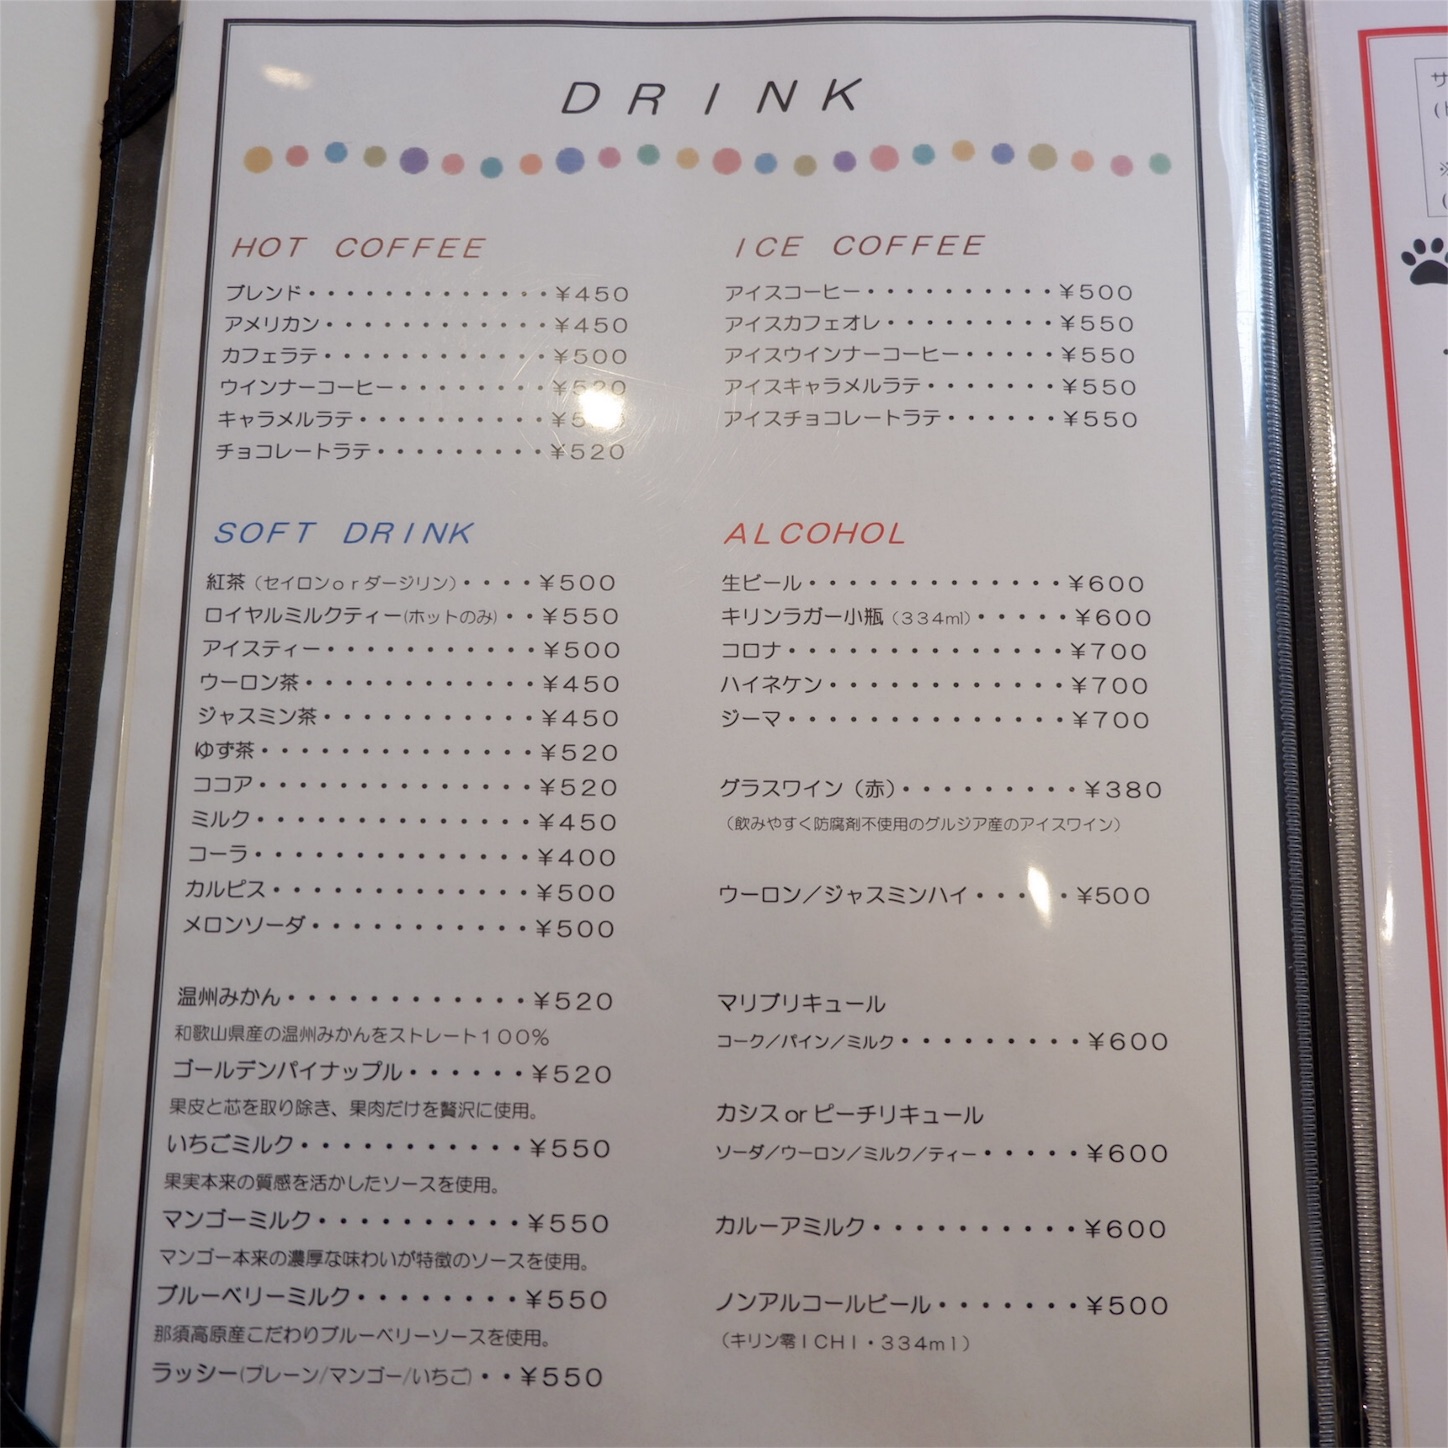 DRINK
HOT COFFEE
ブレンド・・・・・・・・・・・・・¥450
アメリカン・・・・・・・・・・・・¥450
カフェラテ・・・・・・・・・・・・¥500
ウインナーコーヒー・・・・・・・・¥520
キャラメルラテ・・・・・・・・・・
チョコレートラテ・・・・・・・・・¥520
ICE COFFEE
アイスコーヒー・・・・・・・・・・¥500
アイスカフェオレ・・・・・・・・・¥550
アイスウインナーコーヒー・・・・・¥550
アイスキャラメルラテ・・・・・・・¥550
アイスチョコレートラテ・・・・・・¥550
SOFT DRINK
紅茶（セイロンorダージリン）・・・・¥500
ロイヤルミルクティー(ホットのみ)・・¥550
アイスティー・・・・・・・・・・・¥500
ウーロン茶・・・・・・・・・・・・¥450
ジャスミン茶・・・・・・・・・・・¥450
ゆず茶・・・・・・・・・・・・・・¥520
ココア・・・・・・・・・・・・・・¥520
ミルク・・・・・・・・・・・・・・¥450
コーラ・・・・・・・・・・・・・・¥400
カルピス・・・・・・・・・・・・・¥500
メロンソーダ・・・・・・・・・・・¥500
温州みかん・・・・・・・・・・・・¥520
和歌山県産の温州みかんをストレート100%
ゴールデンパイナップル・・・・・・¥520
果皮と芯を取り除き、果肉だけを贅沢に使用。
いちごミルク・・・・・・・・・・・¥550
果実本来の質感を活かしたソースを使用。
マンゴーミルク・・・・・・・・・・¥550
マンゴー本来の濃厚な味わいが特徴のソースを使用。
ブルーベリーミルク・・・・・・・・¥550
那須高原産こだわりブルーベリーソースを使用。
ラッシー(プレーン/マンゴー/いちご)・・¥550
ALCOHOL
生ビール・・・・・・・・・・・・・¥600
キリンラガー小瓶（334ml）・・・・・¥600
コロナ・・・・・・・・・・・・・・¥700
ハイネケン・・・・・・・・・・・・¥700
ジーマ・・・・・・・・・・・・・・¥700
グラスワイン（赤）・・・・・・・・・¥380
（飲みやすく防腐剤不使用のグルジア産のアイスワイン）
ウーロン／ジャスミンハイ・・・・・¥500
マリブリキュール
コーク／パイン／ミルク・・・・・・・・・¥600
カシス or ピーチリキュール
ソーダ／ウーロン／ミルク／ティー・・・・・¥600
カルーアミルク・・・・・・・・・・¥600
ノンアルコールビール・・・・・・・¥500
（キリン零ICHI・334ml）